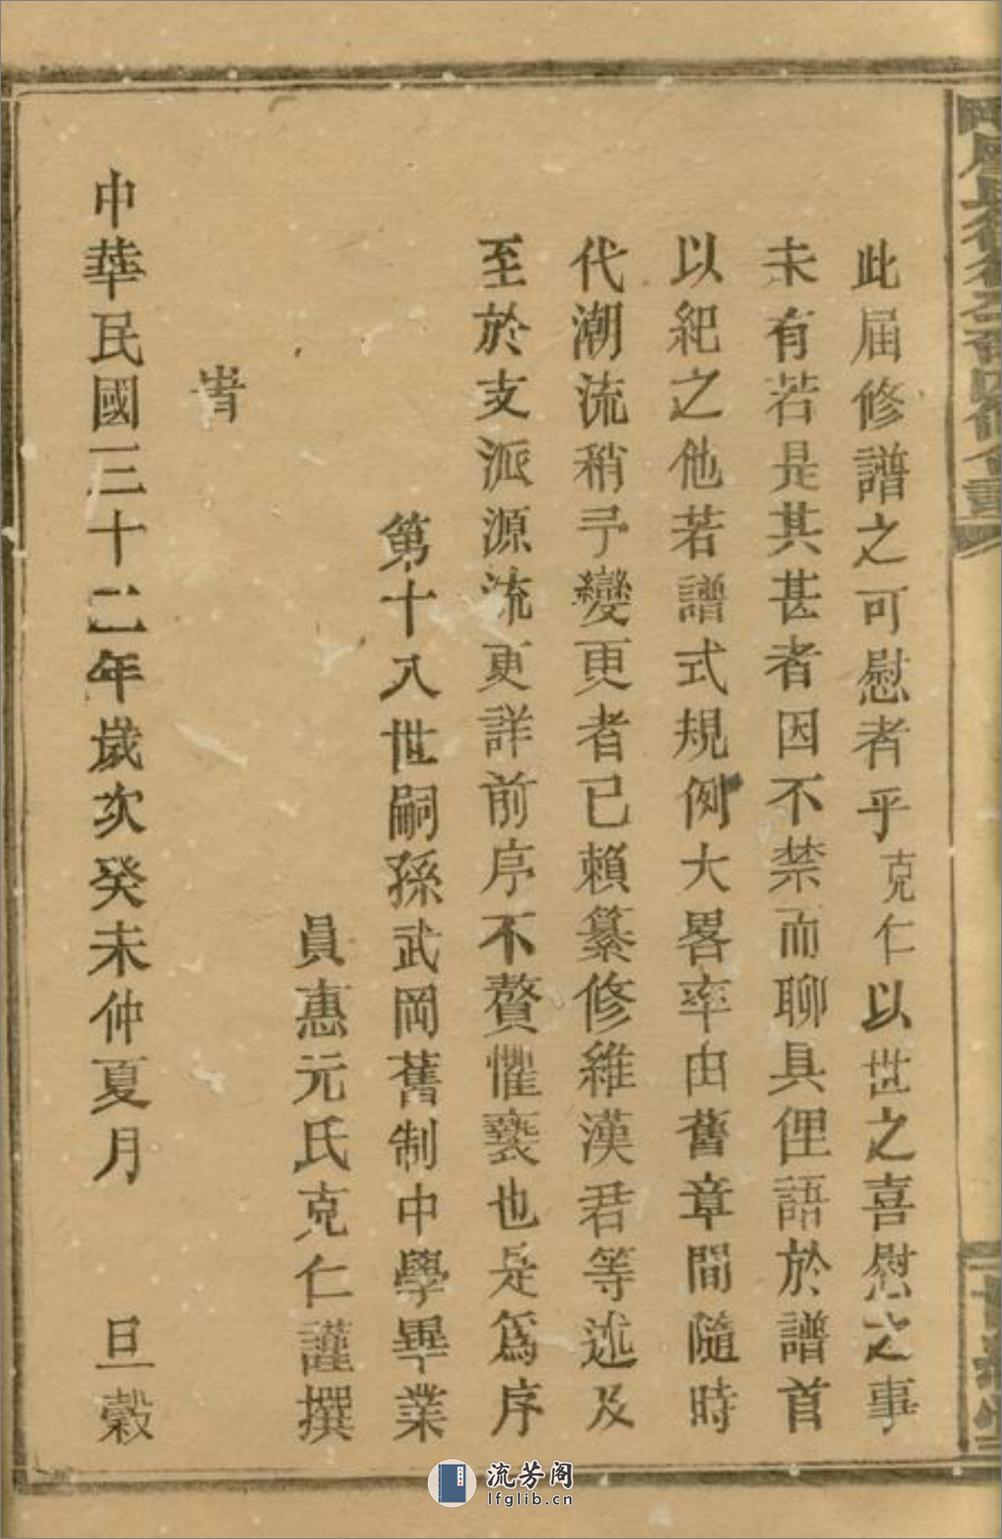 此屆修譜之可慰者乎克仁以世之喜慰之事
未有若是其甚者因不禁而聊具俚語於譜首
以紀之他若譜式規例大畧率由舊章間隨時
代潮流稍予變更者已賴纂修維漢君等述及
至於支派源流更詳前序不贅懼褻也是爲序
第十八世嗣孫武岡舊制中學畢業
員惠元氏克仁謹撰
旹
中華民國三十二年歲次癸未仲夏月 旦穀
流芳阁
lfglib.cn